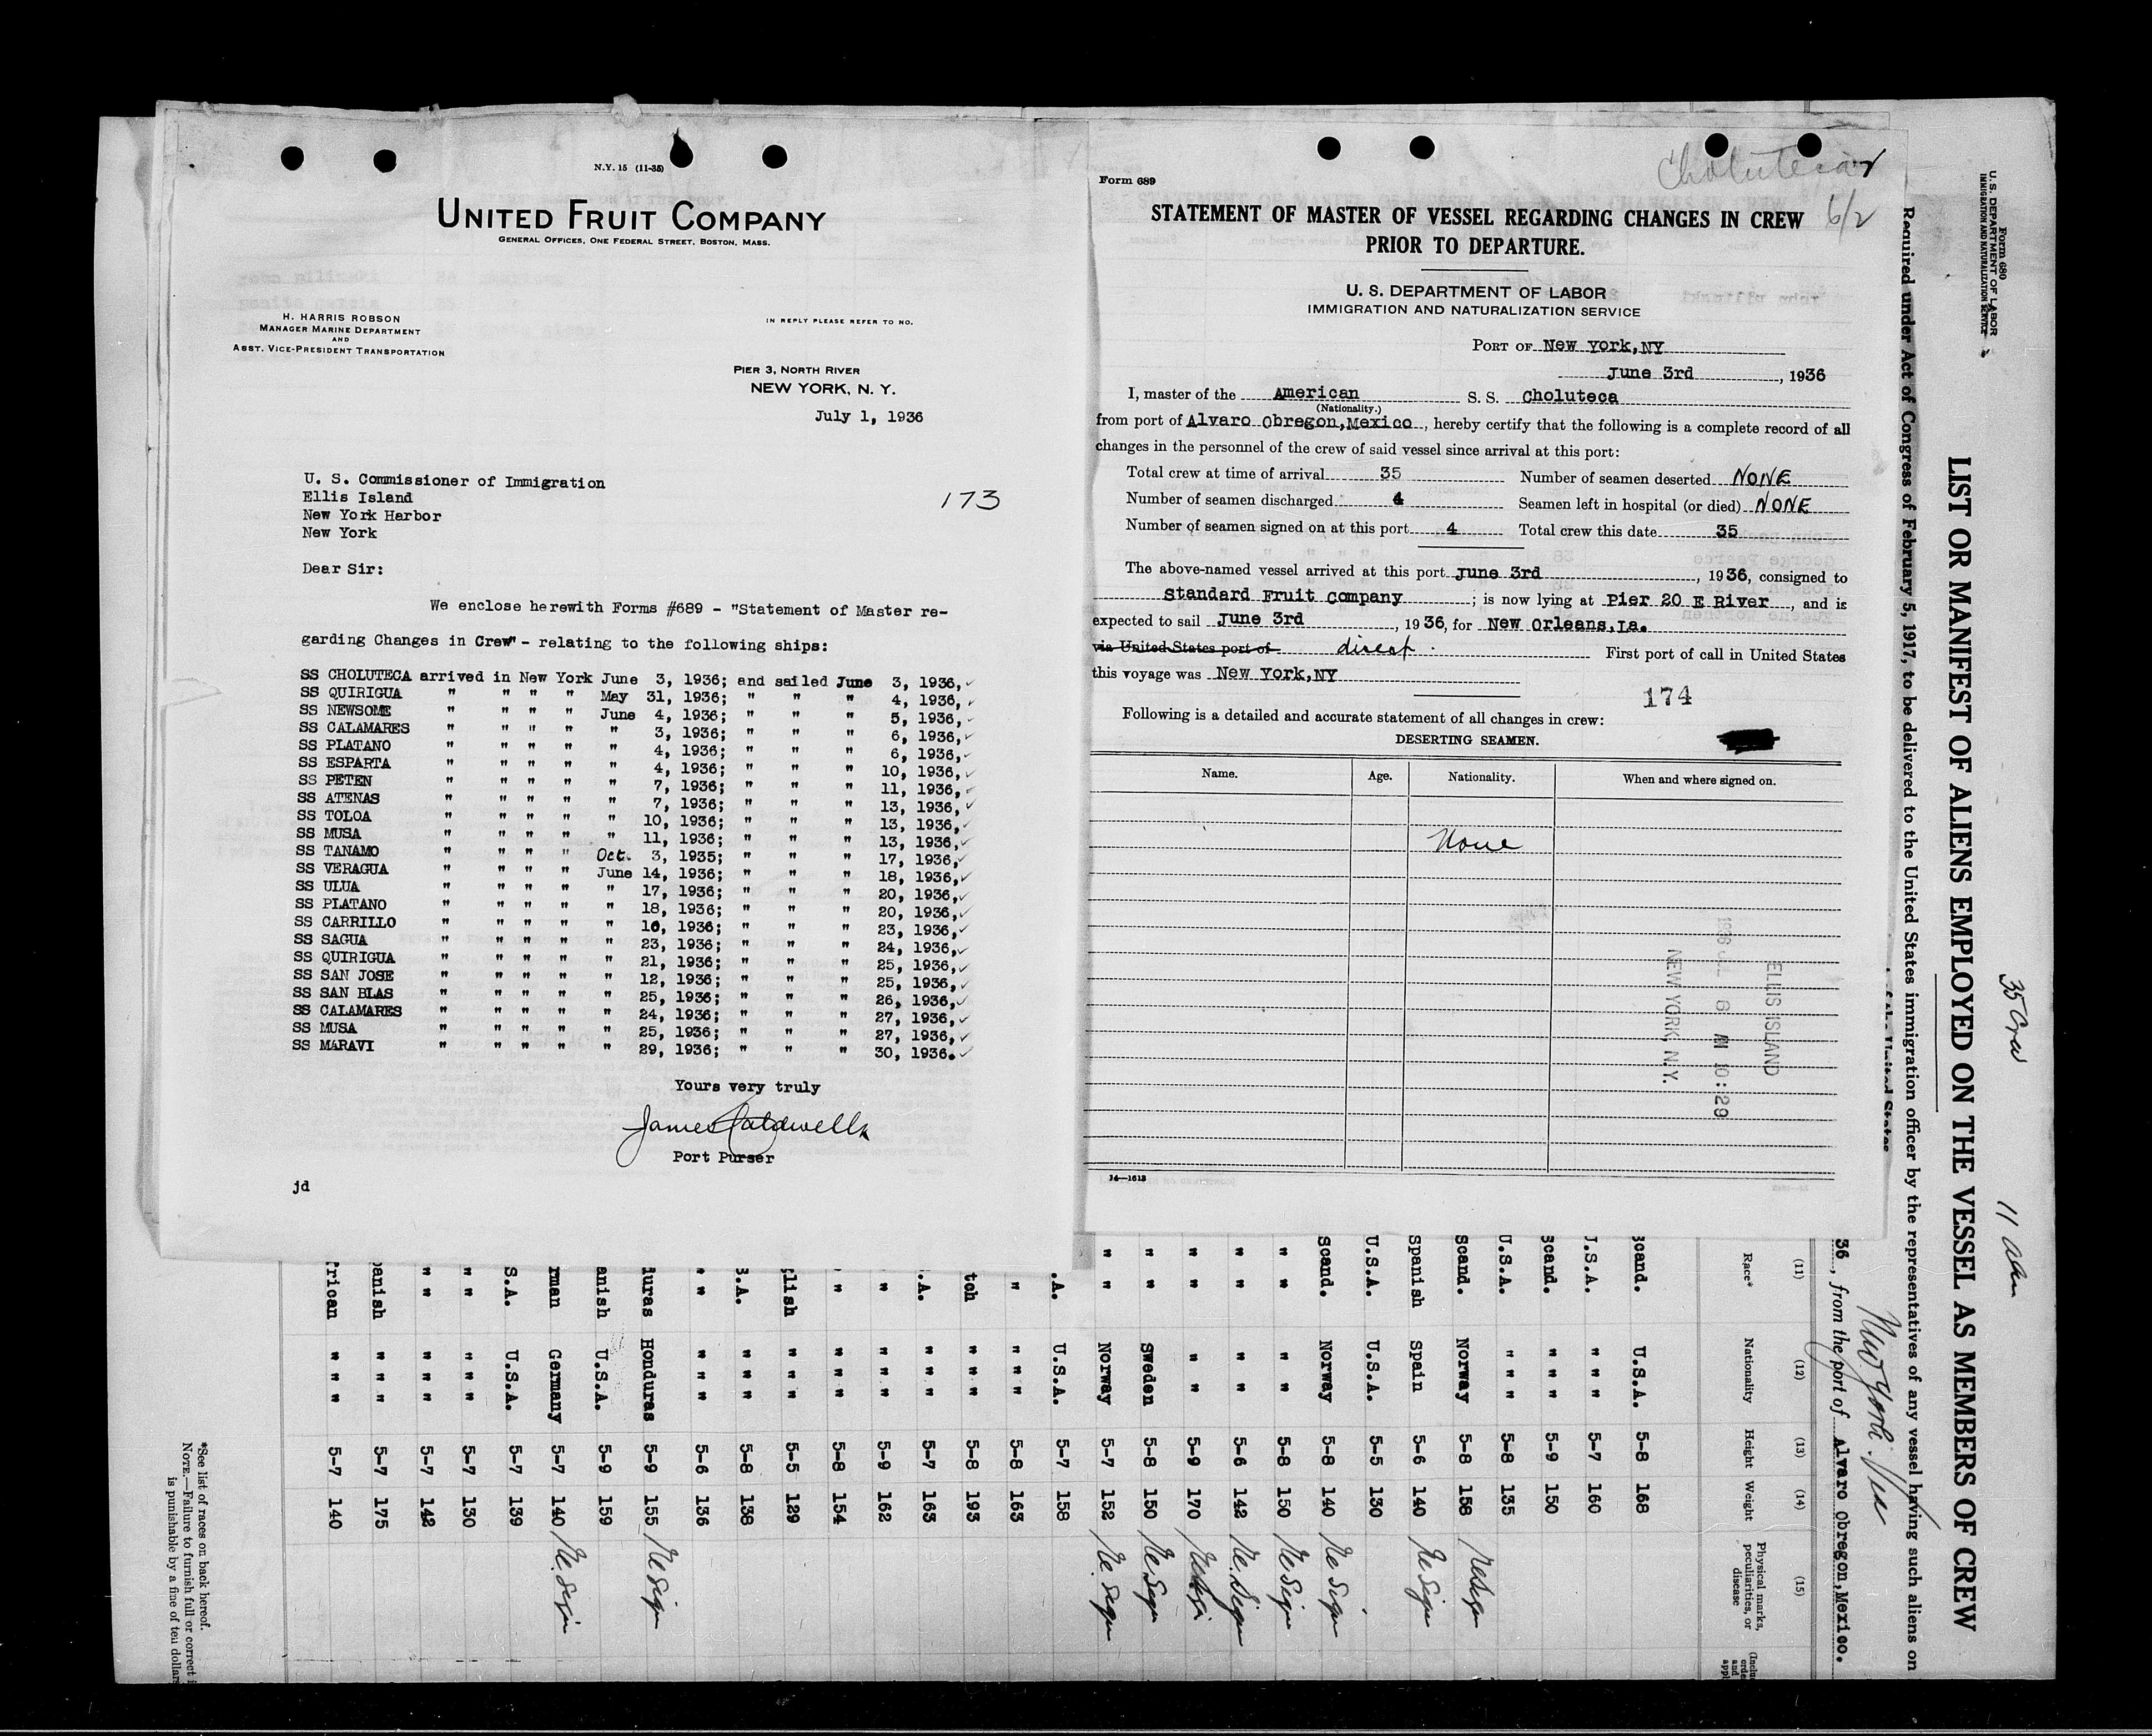 N.Y. 15 (11-35)
UNITED FRUIT COMPANY
GENERAL OFFICES, ONE FEDERAL STREET, BOSTON, MASS.
H. HARRIS ROBSON
MANAGER MARINE DEPARTMENT
AND
ASST. VICE-PRESIDENT TRANSPORTATION
IN REPLY PLEASE REFER TO NO.
PIER 3, NORTH RIVER
NEW YORK, N. Y.
July 1, 1936
U. S. Commissioner of Immigration
Ellis Island
New York Harbor
New York
173
Dear Sir:
We enclose herewith Forms #689 - "Statement of Master re-
garding Changes in Crew" - relating to the following ships:
SS CHOLUTECA arrived in New York June 3, 1936; and sailed June 3, 1936,
SS QUIRIGUA " " " " May 31, 1936; " " " 4, 1936,
SS NEWSOME " " " " June 4, 1936; " " " 5, 1936,
SS CALAMARES " " " " " 3, 1936; " " " 6, 1936,
SS PLATANO " " " " " 4, 1936; " " " 6, 1936,
SS ESPARTA " " " " " 4, 1936; " " " 10, 1936,
SS PETEN " " " " " 7, 1936; " " " 11, 1936,
SS ATENAS " " " " " 7, 1936; " " " 13, 1936,
SS TOLOA " " " " " 10, 1936; " " " 13, 1936,
SS MUSA " " " " " 11, 1936; " " " 13, 1936,
SS TANAMO " " " " Oct. 3, 1935; " " " 17, 1936,
SS VERAGUA " " " " June 14, 1936; " " " 18, 1936,
SS ULUA " " " " " 17, 1936; " " " 20, 1936,
SS PLATANO " " " " " 18, 1936; " " " 20, 1936,
SS CARRILLO " " " " " 16, 1936; " " " 23, 1936,
SS SAGUA " " " " " 23, 1936; " " " 24, 1936,
SS QUIRIGUA " " " " " 21, 1936; " " " 25, 1936,
SS SAN JOSE " " " " " 12, 1936; " " " 25, 1936,
SS SAN BLAS " " " " " 25, 1936; " " " 26, 1936,
SS CALAMARES " " " " " 24, 1936; " " " 27, 1936,
SS MUSA " " " " " 25, 1936; " " " 27, 1936,
SS MARAVI " " " " " 29, 1936; " " " 30, 1936.
Yours very truly
James Caldwell
Port Purser
jd
Form 689
Choluteca
6/2
STATEMENT OF MASTER OF VESSEL REGARDING CHANGES IN CREW
PRIOR TO DEPARTURE.
U. S. DEPARTMENT OF LABOR
IMMIGRATION AND NATURALIZATION SERVICE
PORT OF New York,NY
June 3rd, 1936
I, master of the American S. S. Choluteca
(Nationality.)
from port of Alvaro Obregon,Mexico, hereby certify that the following is a complete record of all
changes in the personnel of the crew of said vessel since arrival at this port:
Total crew at time of arrival 35 Number of seamen deserted NONE
Number of seamen discharged 4 Seamen left in hospital (or died) NONE
Number of seamen signed on at this port 4 Total crew this date 35
The above-named vessel arrived at this port June 3rd, 1936, consigned to
Standard Fruit Company; is now lying at Pier 20 E River, and is
expected to sail June 3rd, 1936, for New Orleans,La.
via United States port of direct. First port of call in United States
this voyage was New York,NY
174
Following is a detailed and accurate statement of all changes in crew:
DESERTING SEAMEN.
Name. Age. Nationality. When and where signed on.
None
ELLIS ISLAND
6 AM 10:29
NEW YORK, N.Y.
14—1613
Form 680
U. S. DEPARTMENT OF LABOR
IMMIGRATION AND NATURALIZATION SERVICE
35 Crew
11 am
LIST OR MANIFEST OF ALIENS EMPLOYED ON THE VESSEL AS MEMBERS OF CREW
Required under Act of Congress of February 5, 1917, to be delivered to the United States immigration officer by the representatives of any vessel having such aliens on
36, from the port of Alvaro Obregon,Mexico.
(11) (12) (13) (14) (15)
Race* Nationality Height Weight Physical marks, peculiarities, or disease
Scand. U.S.A. 5-8 168
U.S.A. " " " 5-7 160
Scand. " " " 5-9 150
U.S.A. " " " 5-8 135
Scand. Norway 5-8 158
Spanish Spain 5-6 140
U.S.A. U.S.A. 5-5 130
Scand. Norway 5-8 140
" " " 5-8 150
" " " 5-6 142
" " " 5-9 170
" " Sweden 5-8 150
" " Norway 5-7 152
.A. U.S.A. 5-7 158
" " " " 5-8 163
tch " " " 5-8 193
.A. " " " 5-7 163
" " " " 5-9 162
" " " " " 5-8 154
glish " " " 5-5 129
S.A. " " " 5-8 138
" " " " " 5-6 136
duras Honduras 5-9 155
anish U.S.A. 5-9 159
rman Germany 5-7 140
S.A. U.S.A. 5-7 139
" " " " " 5-7 130
" " " " " 5-7 142
panish " " " 5-7 175
rican " " " 5-7 140
*See list of races on back hereof.
NOTE.—Failure to furnish full or correct
is punishable by a fine of ten dollars